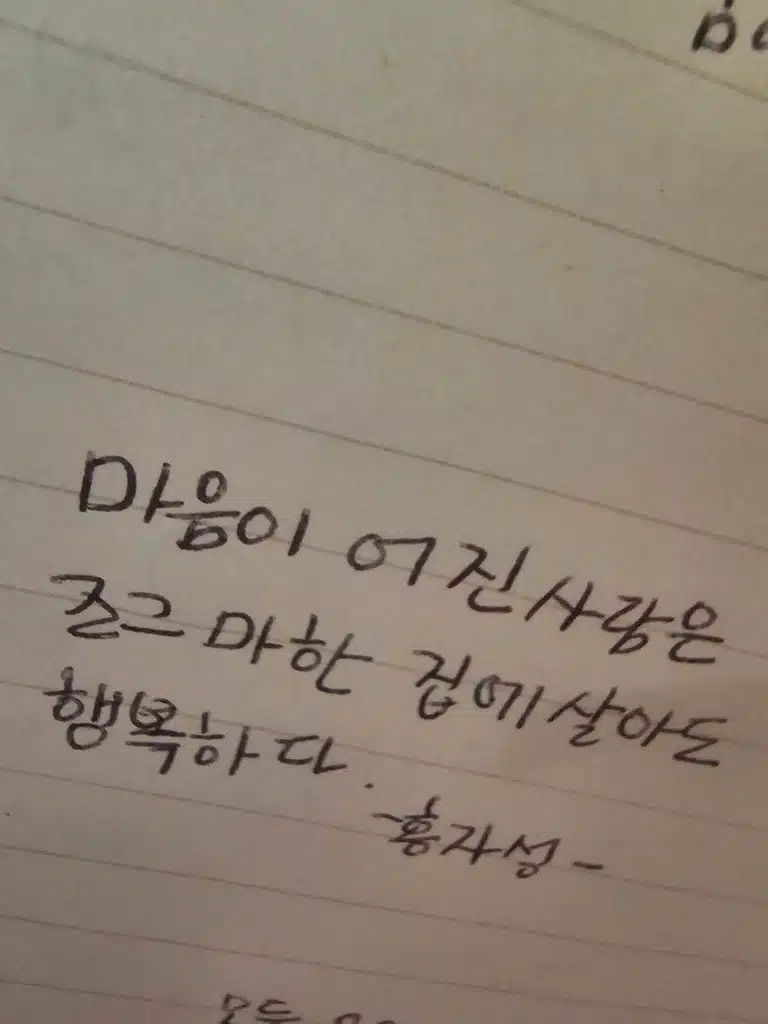 마음이 어진 사람은
조그마한 집에 살아도
행복하다.
-홍자성-